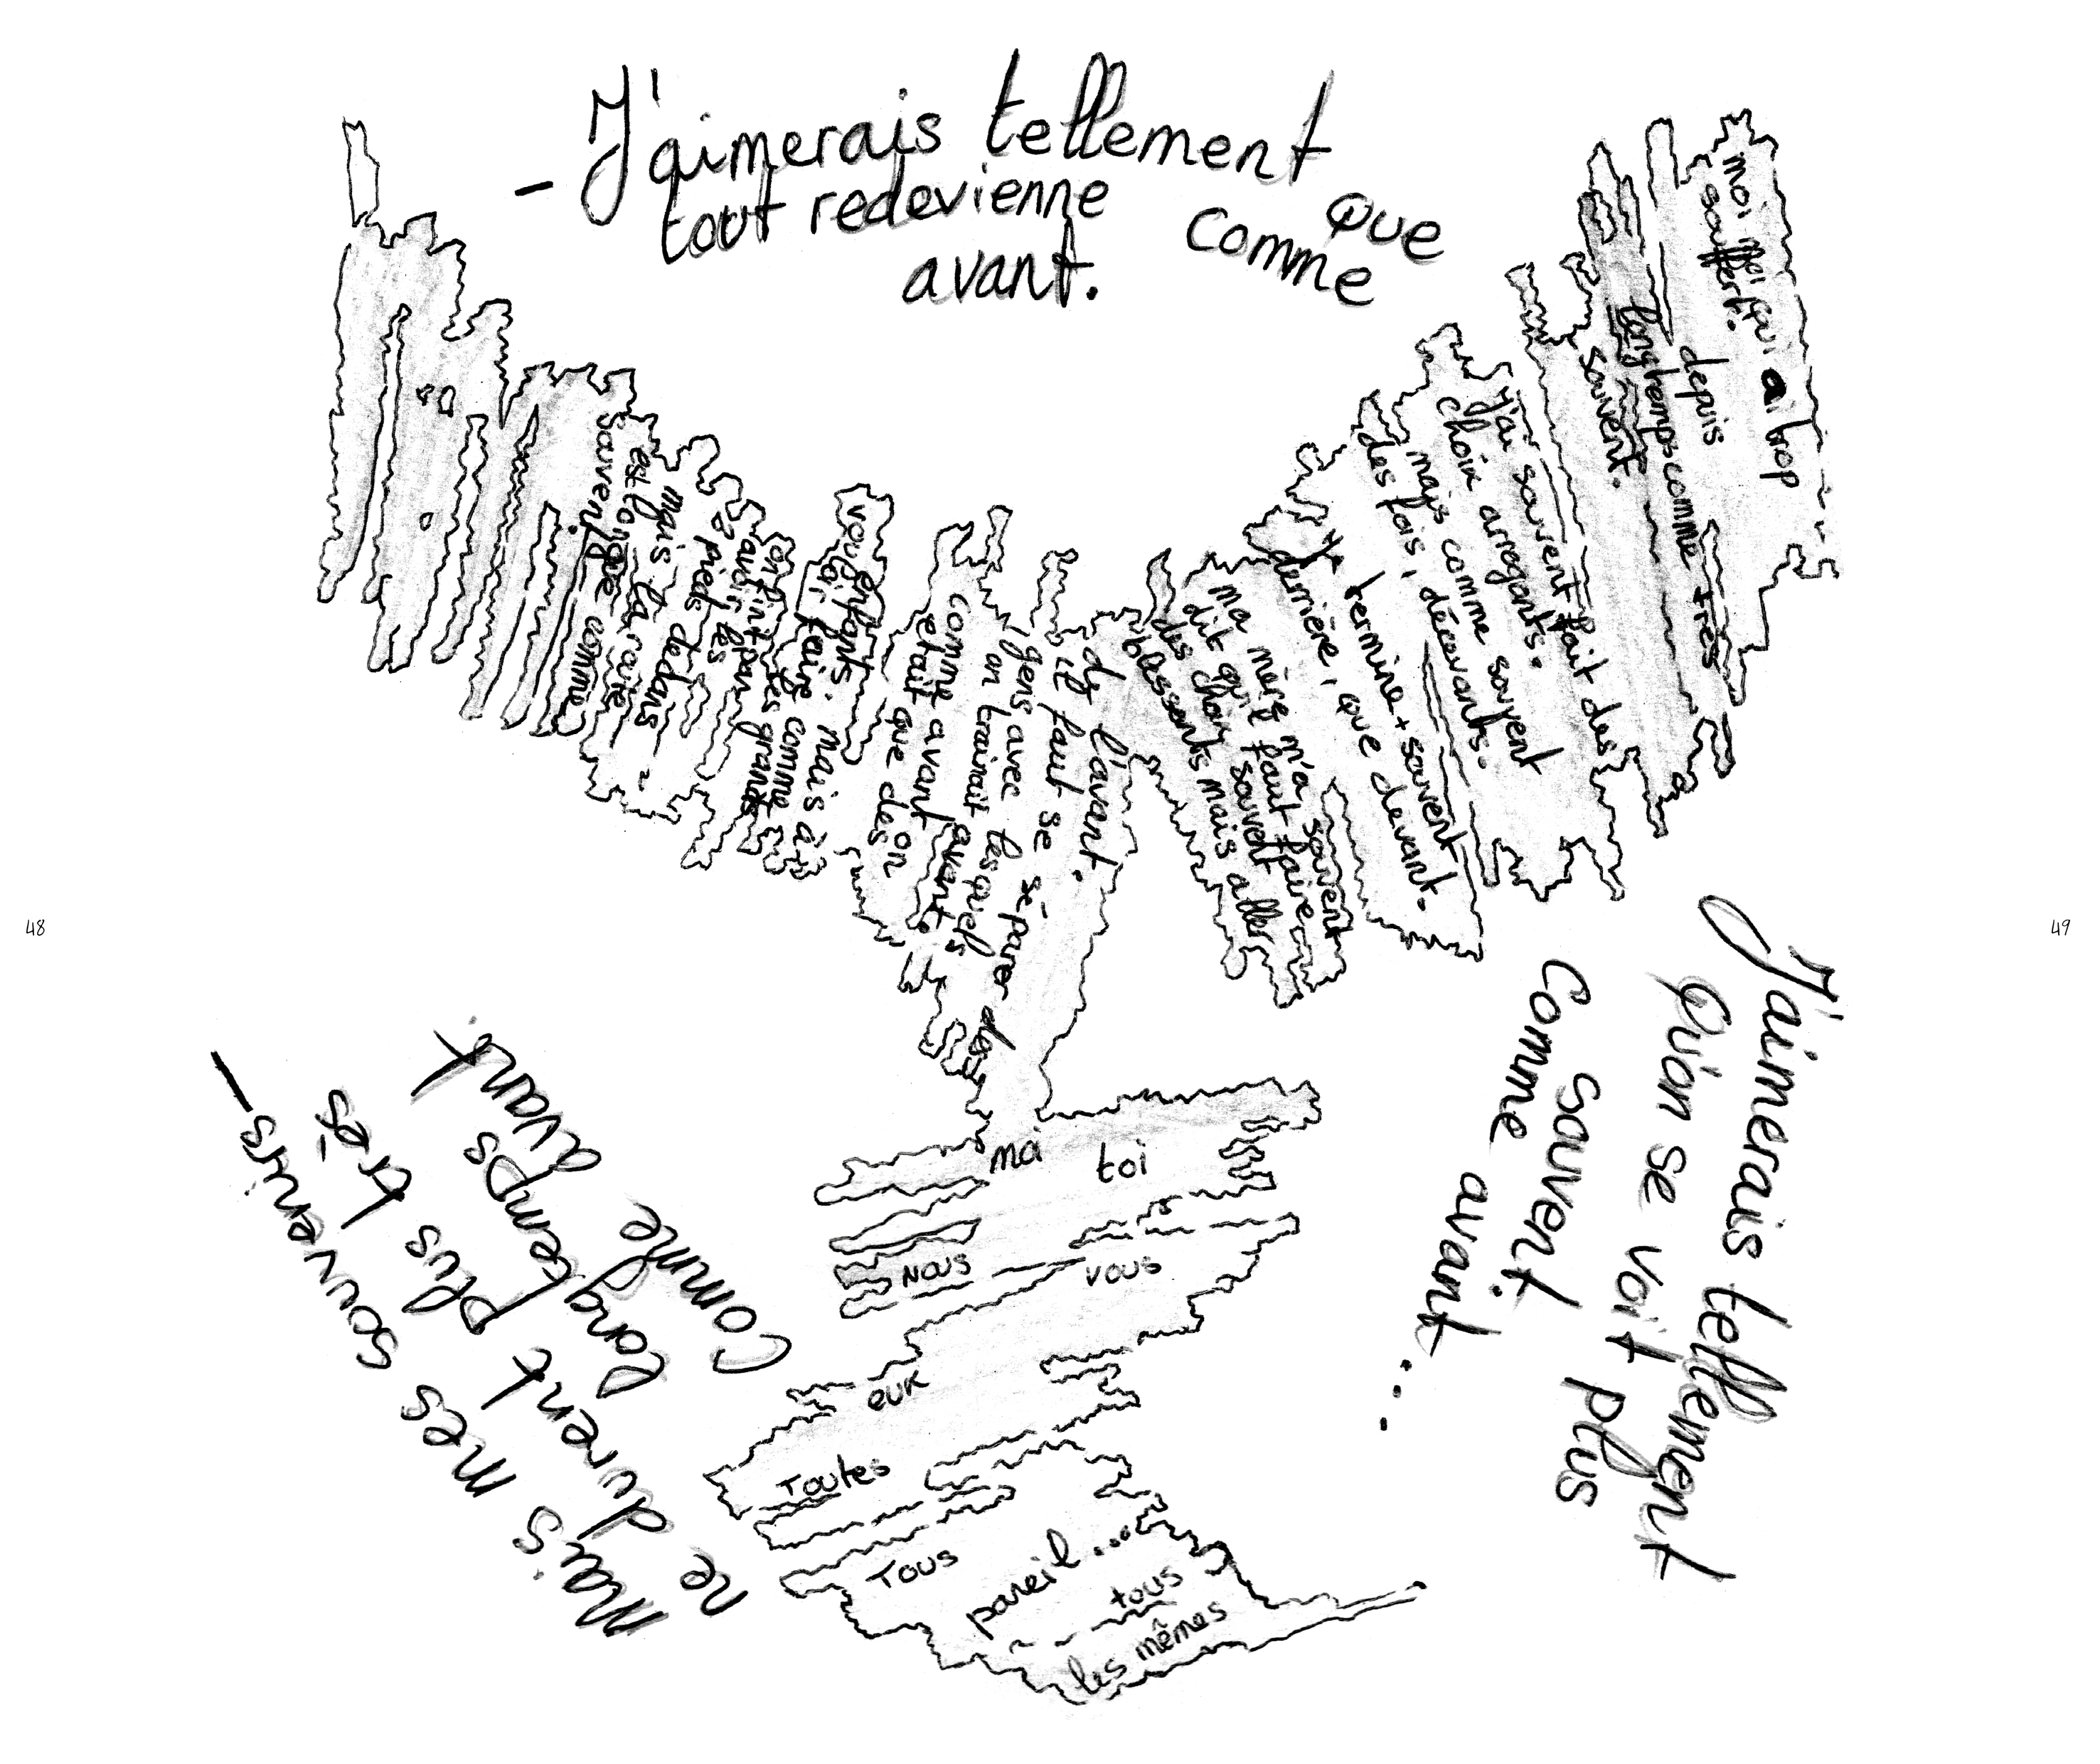 - J'aimerais tellement que
tout redevienne comme
avant.
moi moi qui ai trop
souffert.
depuis
longtemps comme très
souvent.
j'ai souvent fait des
choix arrogants.
mais comme souvent
des fois, décevants.
termine + souvent
derrière, que devant.
ma mère m'a souvent
dit qu'il faut faire
des choix souvent
blessants mais aller
de l'avant.
il faut se séparer des
gens avec lesquels
on trainait avant
comme avant on
etait que des
enfants. mais à
vouloir faire comme les grands
on finit par
avoir les
2 pieds dedans
mais la route
est longue comme
souvent.
48
49
J'aimerais tellement
Qu'on se voit plus
souvent.
Comme avant...
Mais mes souvenirs -
ne durent plus très
longtemps
Comme avant
moi toi
NOUS vous
eux
Toutes
Tous
pareil...
tous
les mêmes